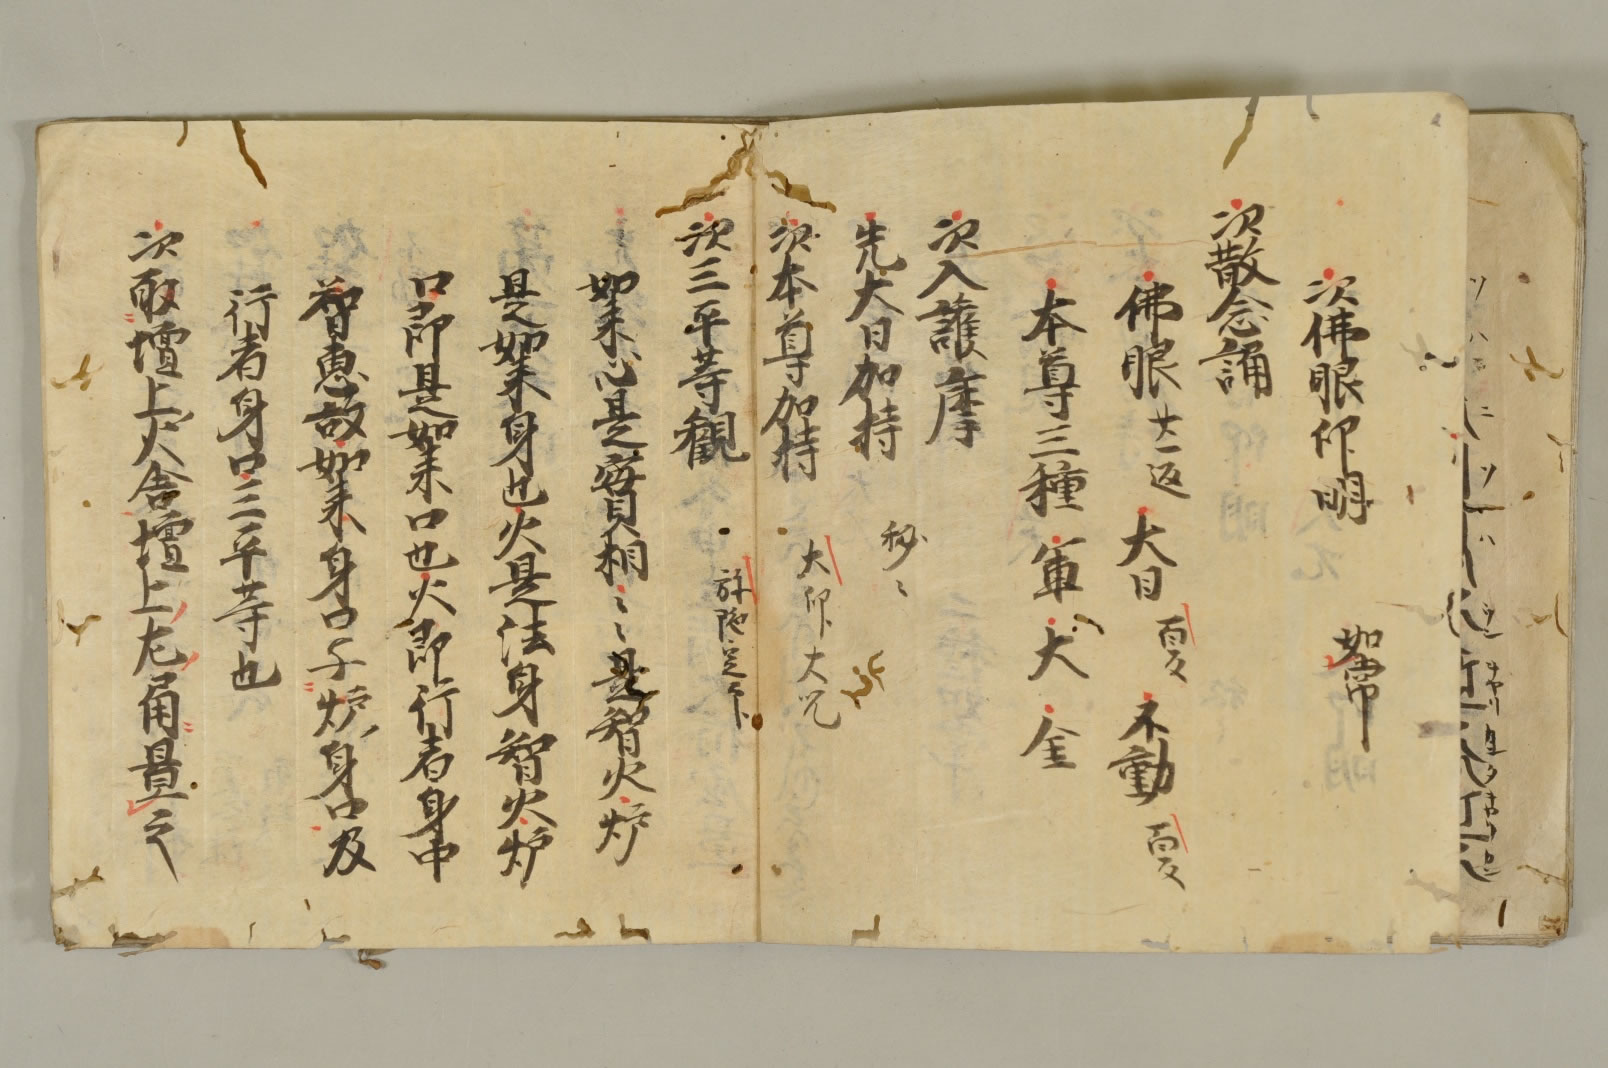 次佛眼印明 如常
次散念誦
佛眼 廿一返 大日 百反 不動 百反
本尊三種 軍 大 金
次入護摩
先大日加持 秘〻
次本尊加持 大印大咒
次三平等観
如来心是實相〻〻是智火炉
是如来身也火是法身智火炉
口即是如来口也火即行者身中
智恵故如来身口子炉身口及
行者身口三平等也
次取壇上火舎壇上左角置之